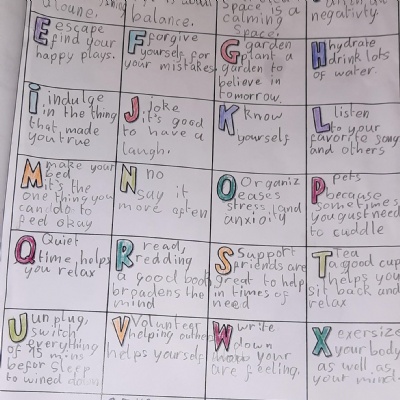 alone.
balance.
space is a
calming
space.
negativty.
E escape
find your
happy plays.
F forgive
yourself for
your mistakes
G garden
plant a
garden to
believe in
tomorrow.
H hydrate
drink lots
of water.
i indulge
in the thing
that made
you true
J Joke
it's good
to have a
laugh.
K know
yourself
L listen
to your
favorite song
and others
M make your
bed
it's the
one thing you
can do to
feel okay
N no
say it
more often
O Organiz
eases
stress and
anxioty
P pets
because
sometimes
you just need
to cuddle
Q Quiet
time, helps
you relax
R read,
redding
a good book
broadens the
mind
S Support
friends are
great to help
in times of
need
T Tea
a good cup
helps you
sit back and
relax
U unplug,
switch
everything
of 15 mins
befor sleep
to wined down
V Volunteer
helping
helps yourself
W write
down
how your
are feeling.
X exersize
your body
as well as
your mind.